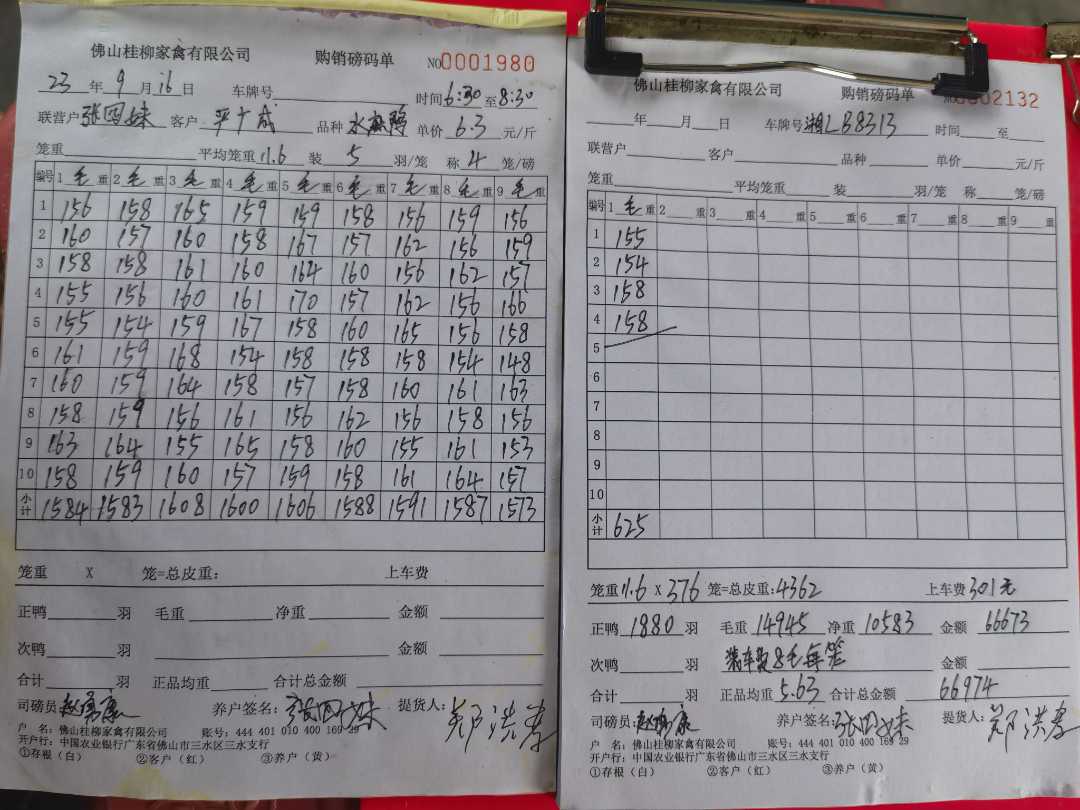 佛山桂柳家禽有限公司 购销磅码单 NO0001980
23年9月16日 车牌号 时间6:30至8:30
联营户张四妹 客户 品种 单价6.3元/斤
笼重 平均笼重11.6 装5羽/笼 称4笼/磅
编号 1毛重 2毛重 3毛重 4毛重 5毛重 6毛重 7毛重 8毛重 9毛重
1 156 158 165 159 159 158 156 159 156
2 160 157 160 158 167 157 162 156 159
3 158 158 161 160 164 160 156 162 157
4 155 156 160 161 170 157 162 156 166
5 155 154 159 167 158 160 165 156 158
6 161 159 168 154 158 158 158 154 148
7 160 159 164 158 157 158 160 161 163
8 158 159 156 161 156 162 156 158 156
9 163 164 155 165 158 160 155 161 153
10 158 159 160 157 159 158 161 164 157
小计 1584 1583 1608 1600 1606 1588 1591 1587 1573
笼重 X 笼=总皮重: 上车费
正鸭 羽 毛重 净重 金额
次鸭 羽 金额
合计 羽 正品均重 合计总金额
司磅员:赵勇康 养户签名:张四妹 提货人:邓洪孝
户 名:佛山桂柳家禽有限公司 账号:444 401 010 400 169 29
开户行:中国农业银行广东省佛山市三水区三水支行
①存根(白) ②客户(红) ③养户(黄)
佛山桂柳家禽有限公司 购销磅码单 NO0002132
年 月 日 车牌号湘LB8313 时间 至
联营户 客户 品种 单价 元/斤
笼重 平均笼重 装 羽/笼 称 笼/磅
编号 1毛重 2 重 3 重 4 重 5 重 6 重 7 重 8 重 9 重
1 155
2 154
3 158
4 158
5
6
7
8
9
10
小计 625
笼重11.6X376笼=总皮重:4362 上车费301元
正鸭1880羽 毛重14945 净重10583 金额66673
次鸭 羽 装车费8毛每笼 金额
合计 羽 正品均重5.63 合计总金额66974
司磅员:赵勇康 养户签名:张四妹 提货人:邓洪孝
户 名:佛山桂柳家禽有限公司 账号:444 401 010 400 169 29
开户行:中国农业银行广东省佛山市三水区三水支行
①存根(白) ②客户(红) ③养户(黄)